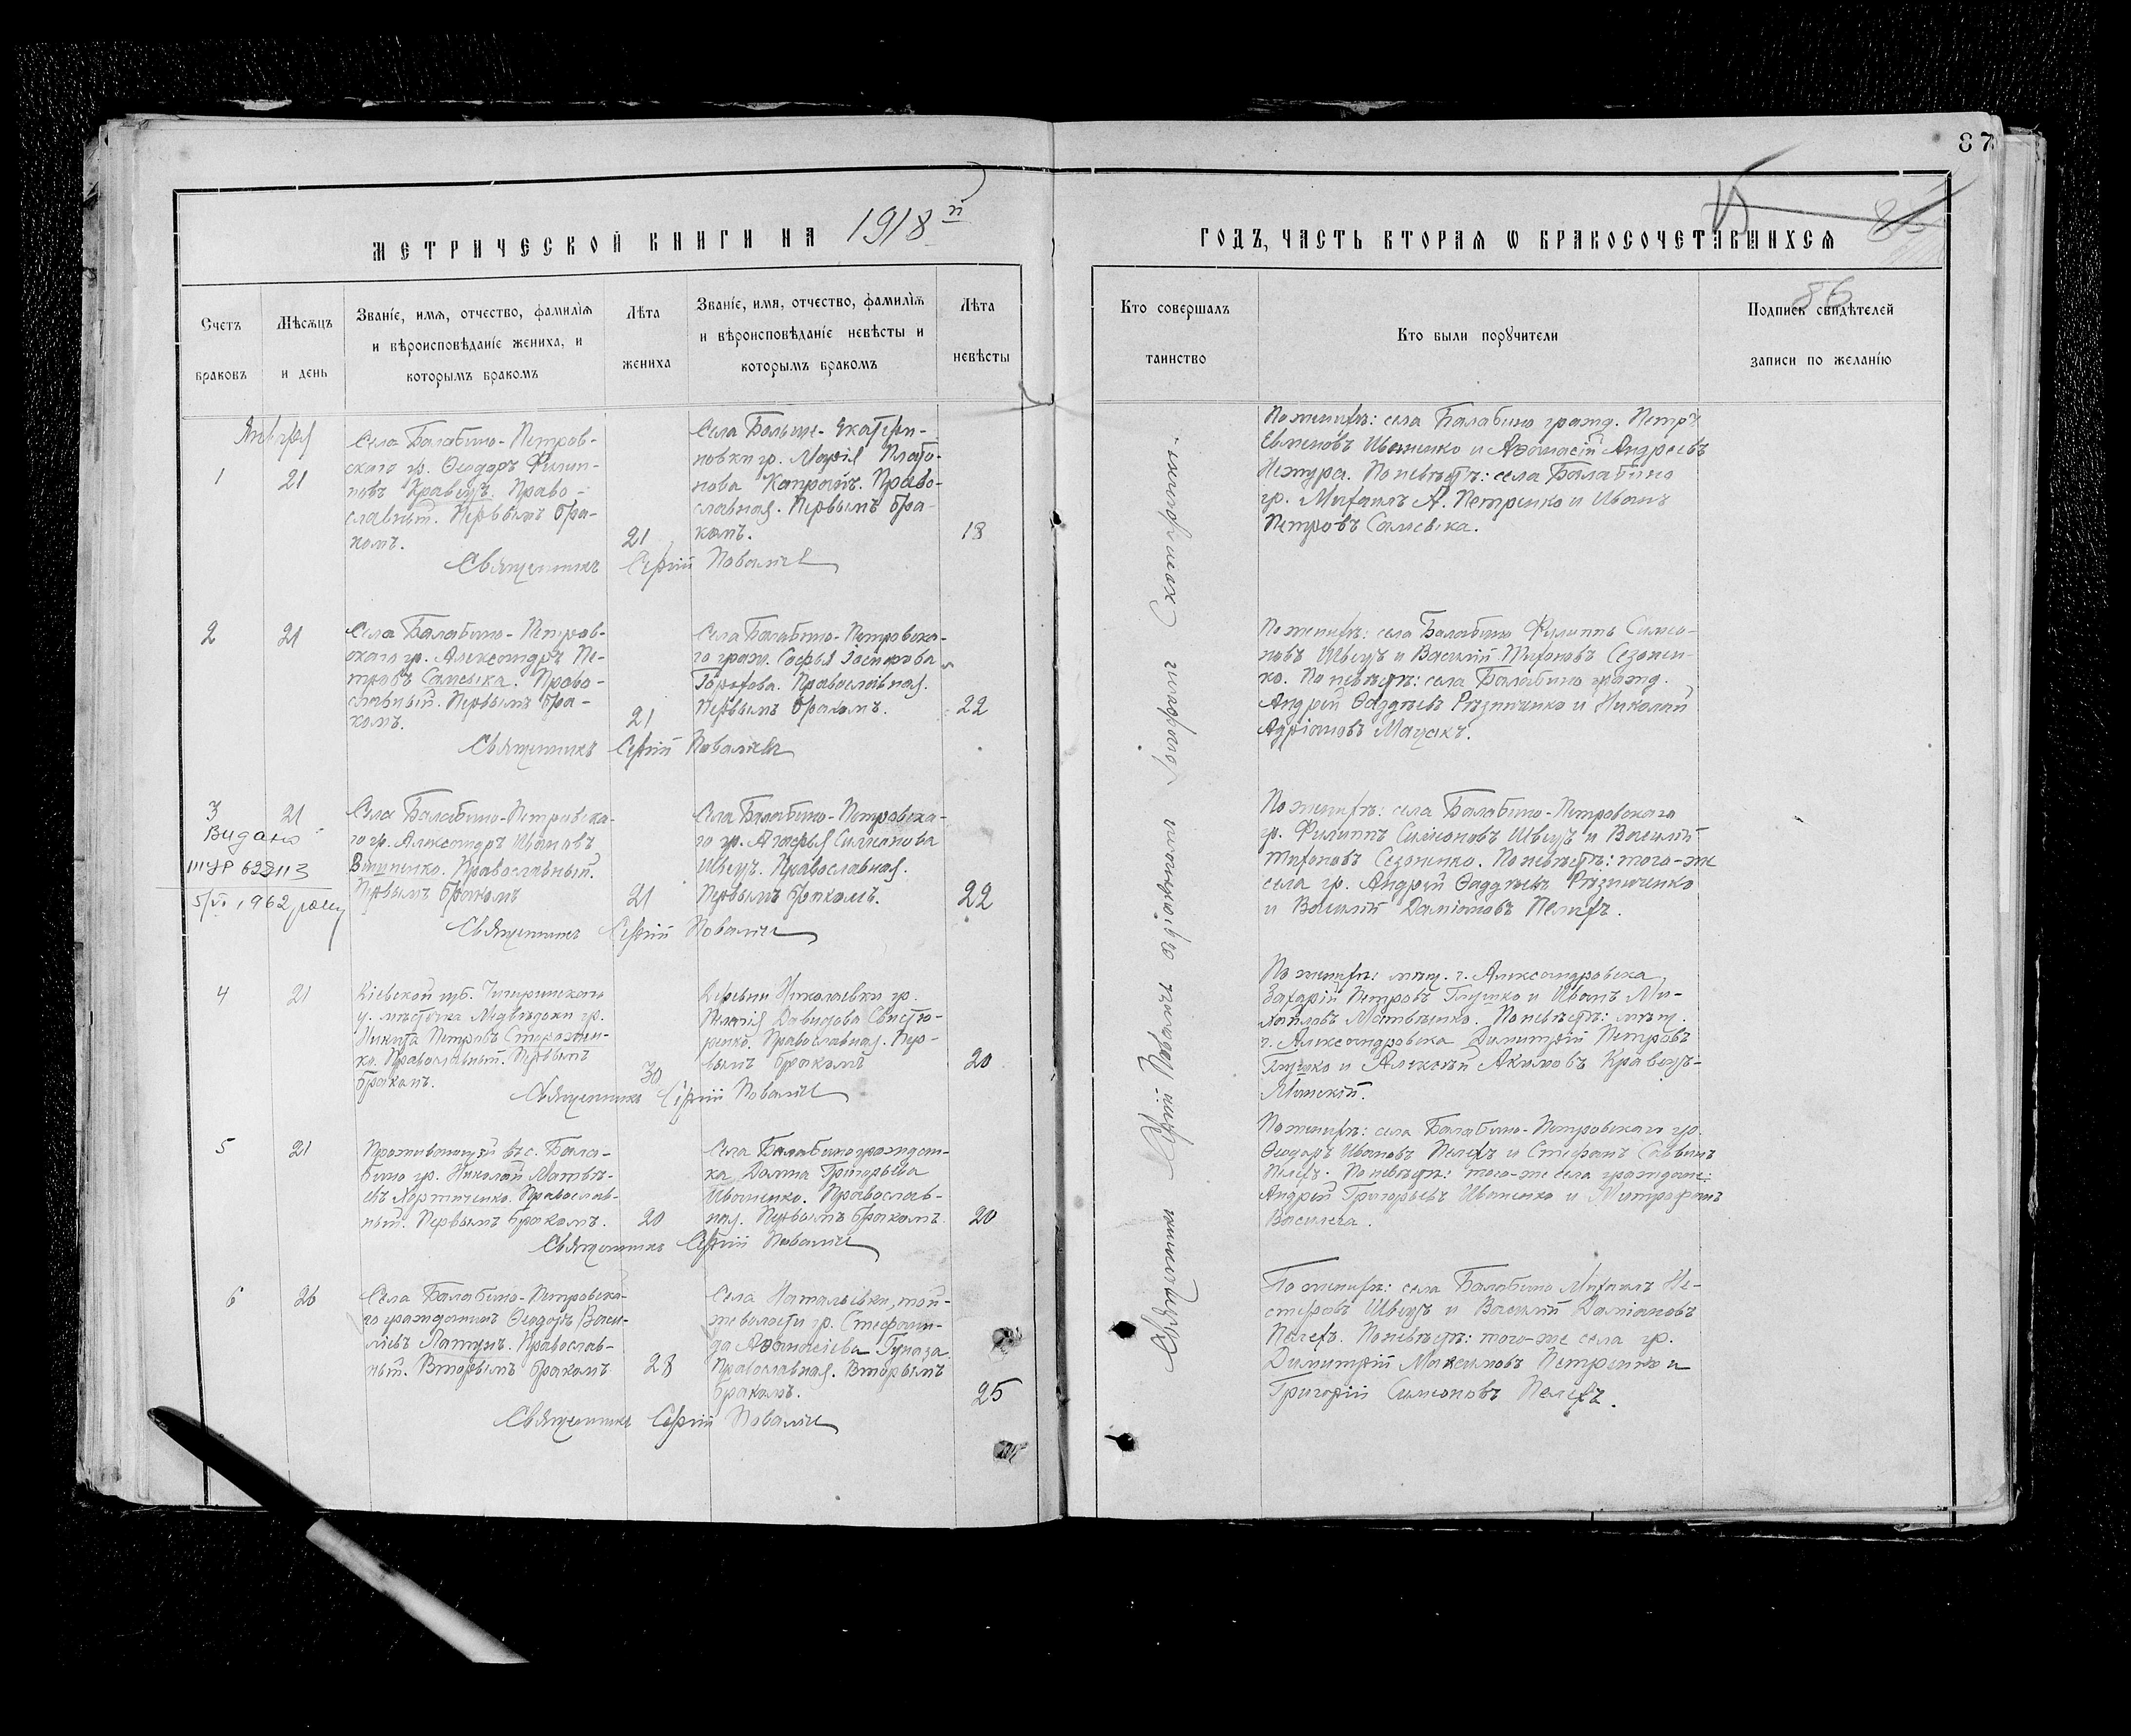 87
86
МЕТРИЧЕСКОЙ КНИГИ НА 1918й
ГОДЪ, ЧАСТЬ ВТОРАЯ Ѡ БРАКОСОЧЕТАВШИХСЯ
Счетъ браковъ
Мѣсяцъ и день
Званіе, имя, отчество, фамилія
и вѣроисповѣданіе жениха, и
которымъ бракомъ
Лѣта
жениха
Званіе, имя, отчество, фамилія
и вѣроисповѣданіе невѣсты и
которымъ бракомъ
Лѣта
невѣсты
Кто совершалъ
таинство
Кто были поручители
Подписи свидѣтелей
записи по желанію
Января
1
21
Села Балабино-Петров-
скаго гр. Ѳеодоръ Филип-
повъ Кравецъ. Право-
славный. Первымъ бра-
комъ.
21
Села Больше-Екатери-
новки гр. Марія Плато-
нова Капранъ. Право-
славная. Первымъ бра-
комъ.
18
Священникъ Сергій
По женихѣ: села Балабино гражд. Петръ
Евменовъ Иваненко и Аѳанасій Андреевъ
Нежура. По невѣстѣ: села Балабино
гр. Михаилъ А. Петренко и Иванъ
Петровъ Самсыка.
2
21
Села Балабино-Петров-
скаго гр. Александръ Пе-
тровъ Самсыка. Право-
славный. Первымъ бра-
комъ.
21
Села Балабино-Петровска-
го граж. Софья
Горохова. Православная.
Первымъ бракомъ.
22
Священникъ Сергій
По женихѣ: села Балабино Филиппъ Симео-
новъ Швецъ и Василій Тихоновъ Сезонен-
ко. По невѣстѣ: села Балабино гражд.
Андрей Ѳаддѣевъ Рѣзниченко и Николай
Адріановъ Мацакъ.
3
21
Видано
5/VI 1962 року
Села Балабино-Петровска-
го гр. Александръ Ивановъ
Вишненко. Православный.
Первымъ бракомъ
21
Села Балабино-Петровска-
го гр. Агафья Симеонова
Швецъ. Православная.
Первымъ бракомъ.
22
Священникъ Сергій
По женихѣ: села Балабино-Петровскаго
гр. Филиппъ Симеоновъ Швецъ и Василій
Тихоновъ Сезоненко. По невѣстѣ: того-же
села гр. Андрей Ѳаддѣевъ Рѣзниченко
и Василій Даміановъ Пелехъ.
4
21
Кіевской губ. Чигиринскаго
у. мѣстечка Медвѣдовки гр.
Никита Петровъ Сторожен-
ко. Православный. Первымъ
бракомъ.
30
Деревни Николаевки гр.
Пелагія Давидова Свисту-
ренко. Православная. Пер-
вымъ бракомъ
20
Священникъ Сергій
По женихѣ: мѣщ. г. Александровска
Захарій Петровъ Глушко и Иванъ Ми-
хайловъ Матвѣенко. По невѣстѣ: мѣщ.
г. Александровска Димитрій Петровъ
Глушко и Алексѣй Акимовъ Кравецъ-
5
21
Проживающій въ с. Бала-
бино гр. Николай Матвѣ-
евъ Хортиченко. Православ-
ный. Первымъ бракомъ.
20
Села Балабино граждан-
ка Домна Григорьева
Иваненко. Православ-
ная. Первымъ бракомъ
20
Священникъ Сергій
По женихѣ: села Балабино-Петровскаго гр.
Ѳеодоръ Ивановъ Пелехъ и Стефанъ Саввинъ
Пелехъ. По невѣстѣ: того-же села граждане:
Андрей Григорьевъ Иваненко и Митрофанъ
6
26
Села Балабино-Петровска-
го гражданинъ Ѳеодоръ Васи-
ліевъ Латунъ. Православ-
ный. Вторымъ бракомъ
28
Села Натальевки, той-
же волости гр. Стефани-
да Аѳанасіева
Православная. Вторымъ
бракомъ.
25
Священникъ Сергій
По женихѣ: села Балабино Михаилъ Не-
стеровъ Швецъ и Василій Даміановъ
Пелехъ. По невѣстѣ: того-же села гр.
Димитрій Максимовъ Петренко и
Григорій Симеоновъ Пелехъ.
Священникъ Сергій